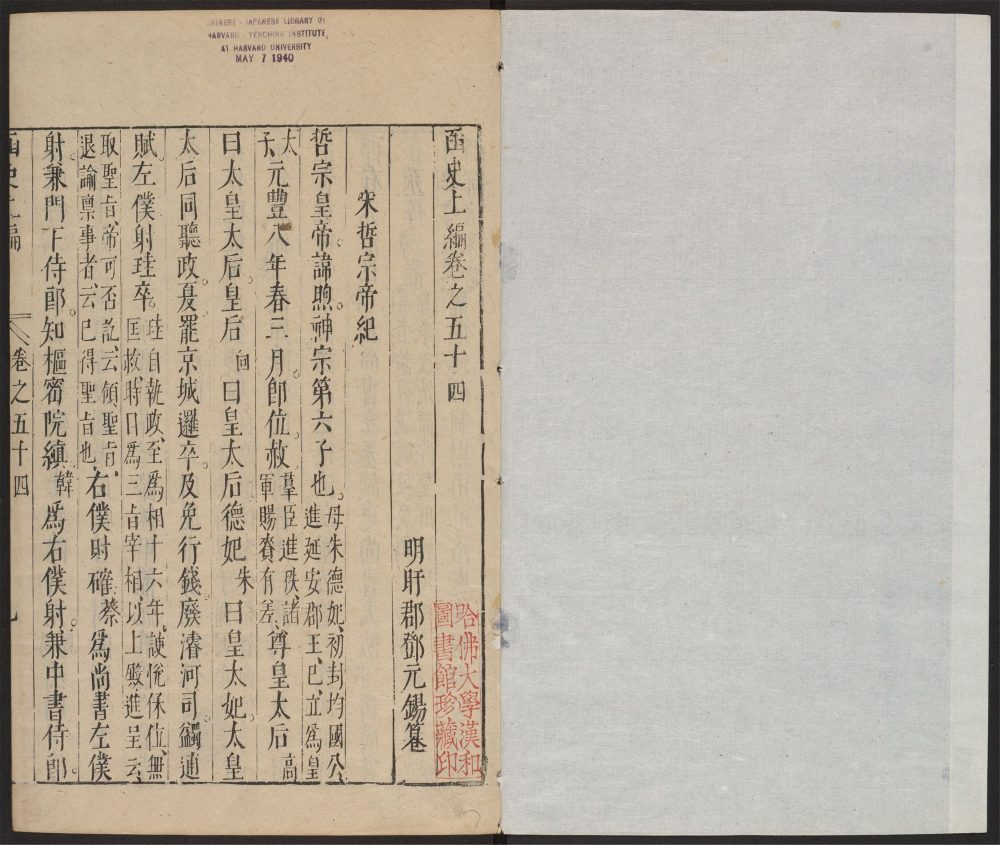 CHINESE - JAPANESE LIBRARY OF
HARVARD - YENCHING INSTITUTE
AT HARVARD UNIVERSITY
MAY 7 1940
函史上編卷之五十四
明盱郡鄧元錫纂
哈佛大學漢和
圖書館珍藏印
宋哲宗帝紀
哲宗皇帝諱煦神宗第六子也母朱德妃初封均國公進延安郡王已立為皇
太子元豐八年春三月卽位赦羣臣進秩諸軍賜賚有差尊皇太后高
曰太皇太后皇后向曰皇太后德妃朱曰皇太妃太皇
太后同聽政夏罷京城邏卒及免行錢廢濬河司蠲逋
賦左僕射珪卒珪自執政至為相十六年諛恱保位無匡救時目為三旨宰相以上殿進呈云
取聖旨帝可否訖云領聖旨退諭禀事者云已得聖旨也右僕射確蔡為尚書左僕
射兼門下侍郎知樞密院縝韓為右僕射兼中書侍郎
函史上編
卷之五十四